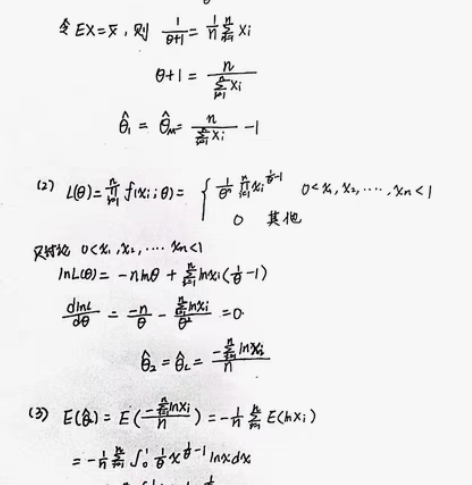 令 EX = x̄, 则 1/(θ+1) = (1/n) Σ_{i=1}^{n} Xi
θ+1 = n / Σ_{i=1}^{n} Xi
θ̂₁ = θ̂_M = n / Σ_{i=1}^{n} Xi − 1
(2) L(θ) = ∏_{i=1}^{n} f(xi; θ) = { (1/θⁿ) ∏_{i=1}^{n} xi^{1/θ −1}   0<x₁, x₂, ⋯, xn<1
0   其他
只讨论 0<x₁, x₂, ⋯ xn<1
lnL(θ) = −n lnθ + Σ_{i=1}^{n} lnxi (1/θ −1)
dlnL/dθ = −n/θ − Σ_{i=1}^{n} lnxi / θ² = 0
θ̂₂ = θ̂_L = −Σ_{i=1}^{n} lnxi / n
(3) E(θ̂₂) = E(−Σ_{i=1}^{n} lnxi / n) = −(1/n) Σ_{i=1}^{n} E(lnXi)
= −(1/n) Σ_{i=1}^{n} ∫₀¹ (1/θ) x^{1/θ −1} lnx dx